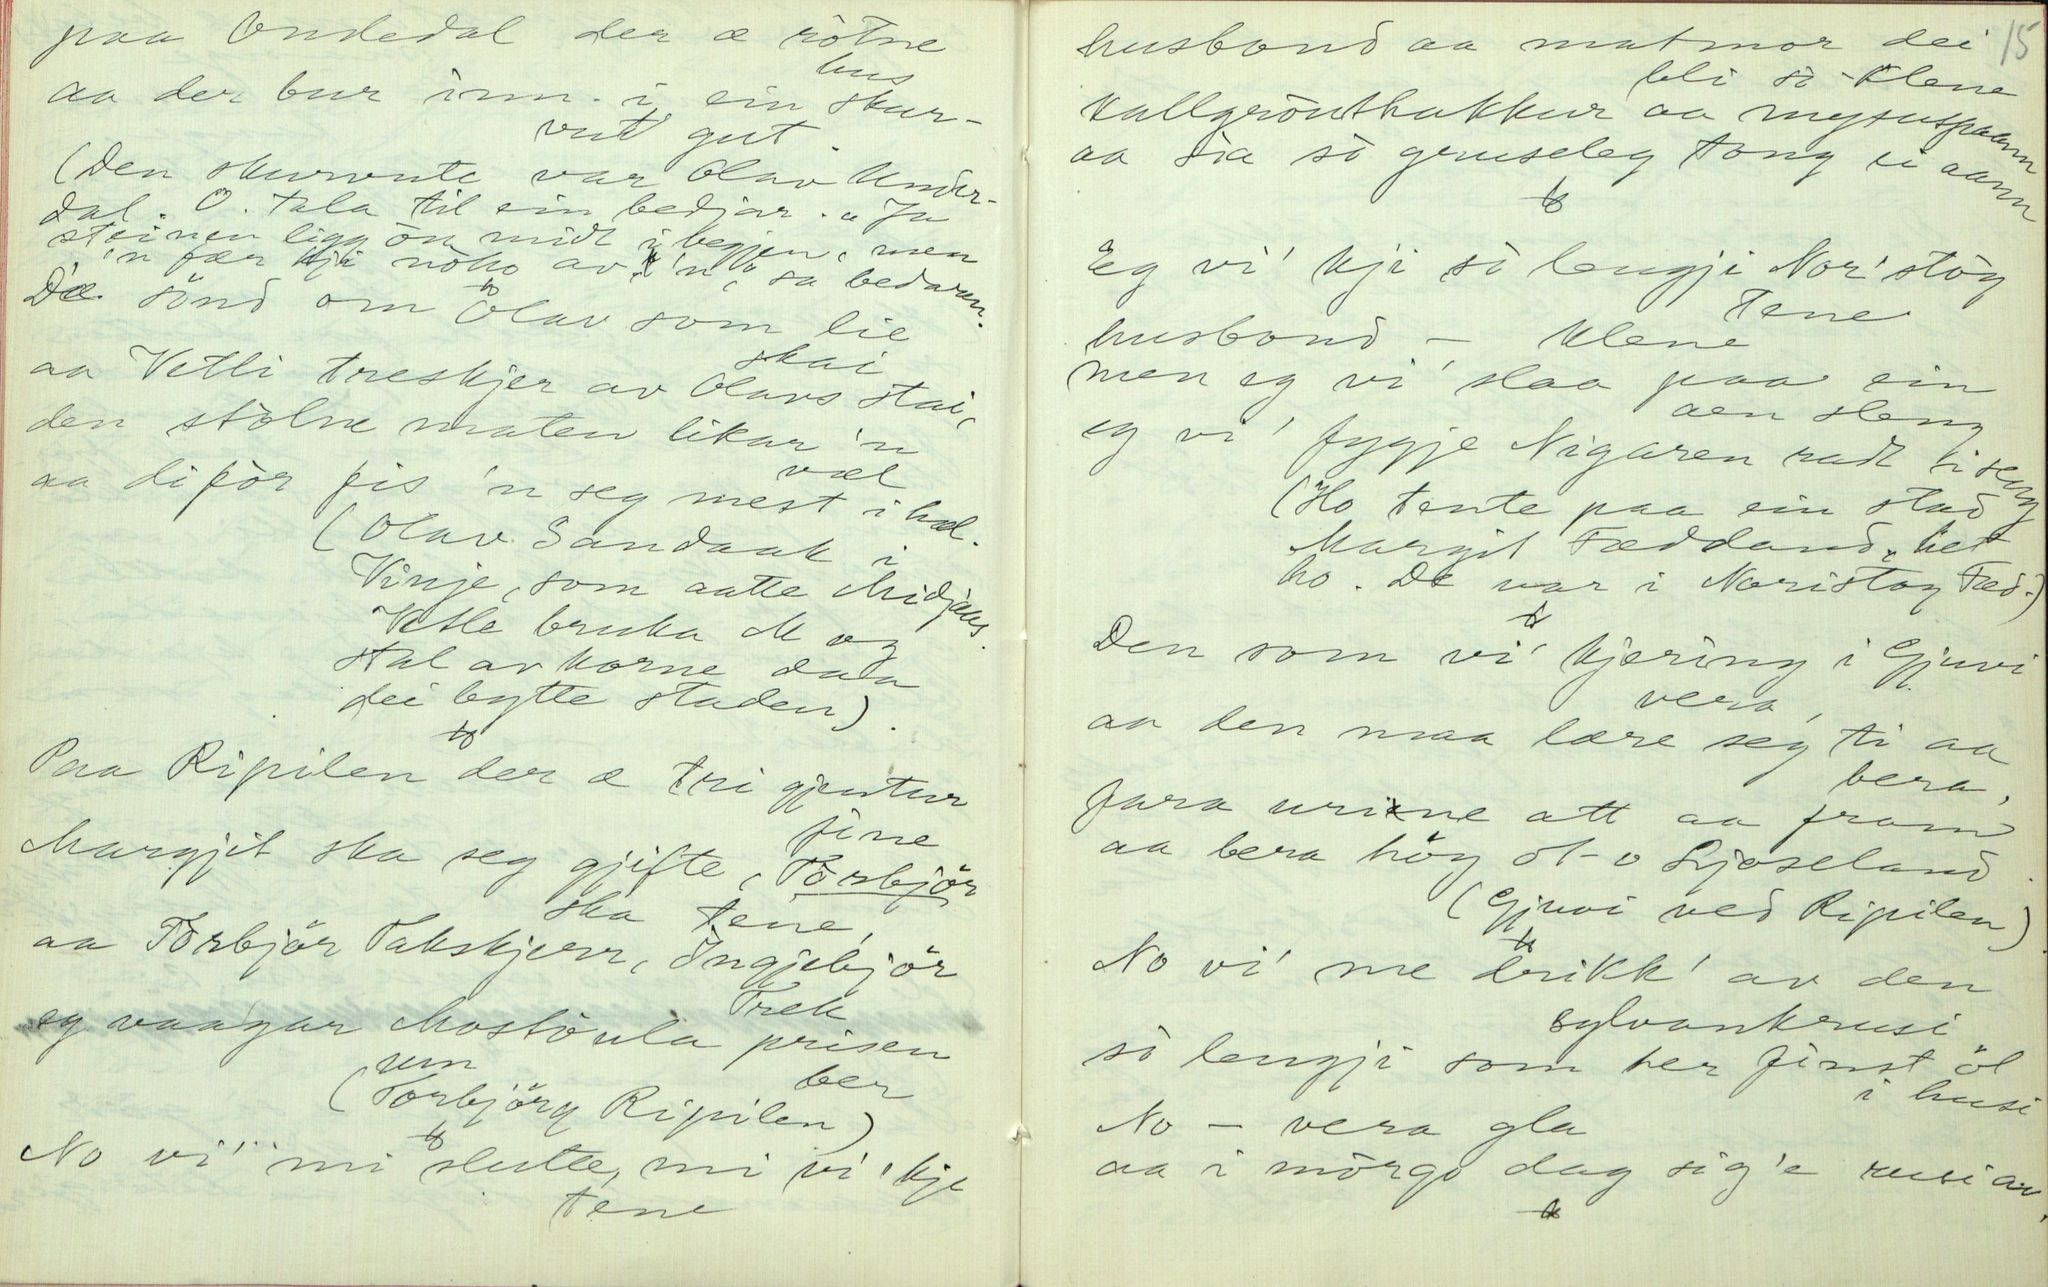 paa Undedal der æ rötne
hus
aa der bur inn i ein skur-
vut gut.
(Den skurvute var Olav Under-
dal. O. tala til ein bedjar. "Ja
steinen ligg ön midt i begjen, men
'n fær kji nöko av 'n", sa bedaren.
D'æ sönd om Olav som lie
skai
aa Vetli treskjer av Olavs stai,
den stölne maten likar 'n
væl
aa diför fis 'n seg mest ihæl.
(Olav Sandaak i
Vinje, som aatte Midjaas.
Vetle bruka M og
stal av korne daa
dei bytte staden).
Paa Ripilen der æ tri gjentur
fine
Margjit ska seg gjifte, Torbjör
ska tene,
aa Torbjör Takskjerr, Ingjebjör
Trek
eg vaagar Mostöula prisen
um ber
(Torbjörg Ripilen)
No vi' mi slutte, mi vi' kje
tene
15
husbond aa matmor dei
bli so klene
Kallgröuthakkur aa mysuspaann
aa sia so gruseleg tong ei aann
Eg vi' kji so lengji Nor'stög
tene
husbond – klene
men eg vi' slaa paa ein
aen sleng
eg vi' fygje Nigaren radt ti seng
(Ho tente paa ein stad
Margit Fæddand, het
ho. De var i Noristog Fæd.)
Den som vi' kjering i Gjuvi
vera,
aa den maa lære seg ti aa
bera,
fara urine att aa fram
aa bera höy ot-o Ljoseland.
(Gjuvi ved Ripilen)
No vi' me drikk' av den
sylvankrusi
so lengji som her finst öl
i husi
No – vera gla
aa i mörgo dag sig'e rusi av.